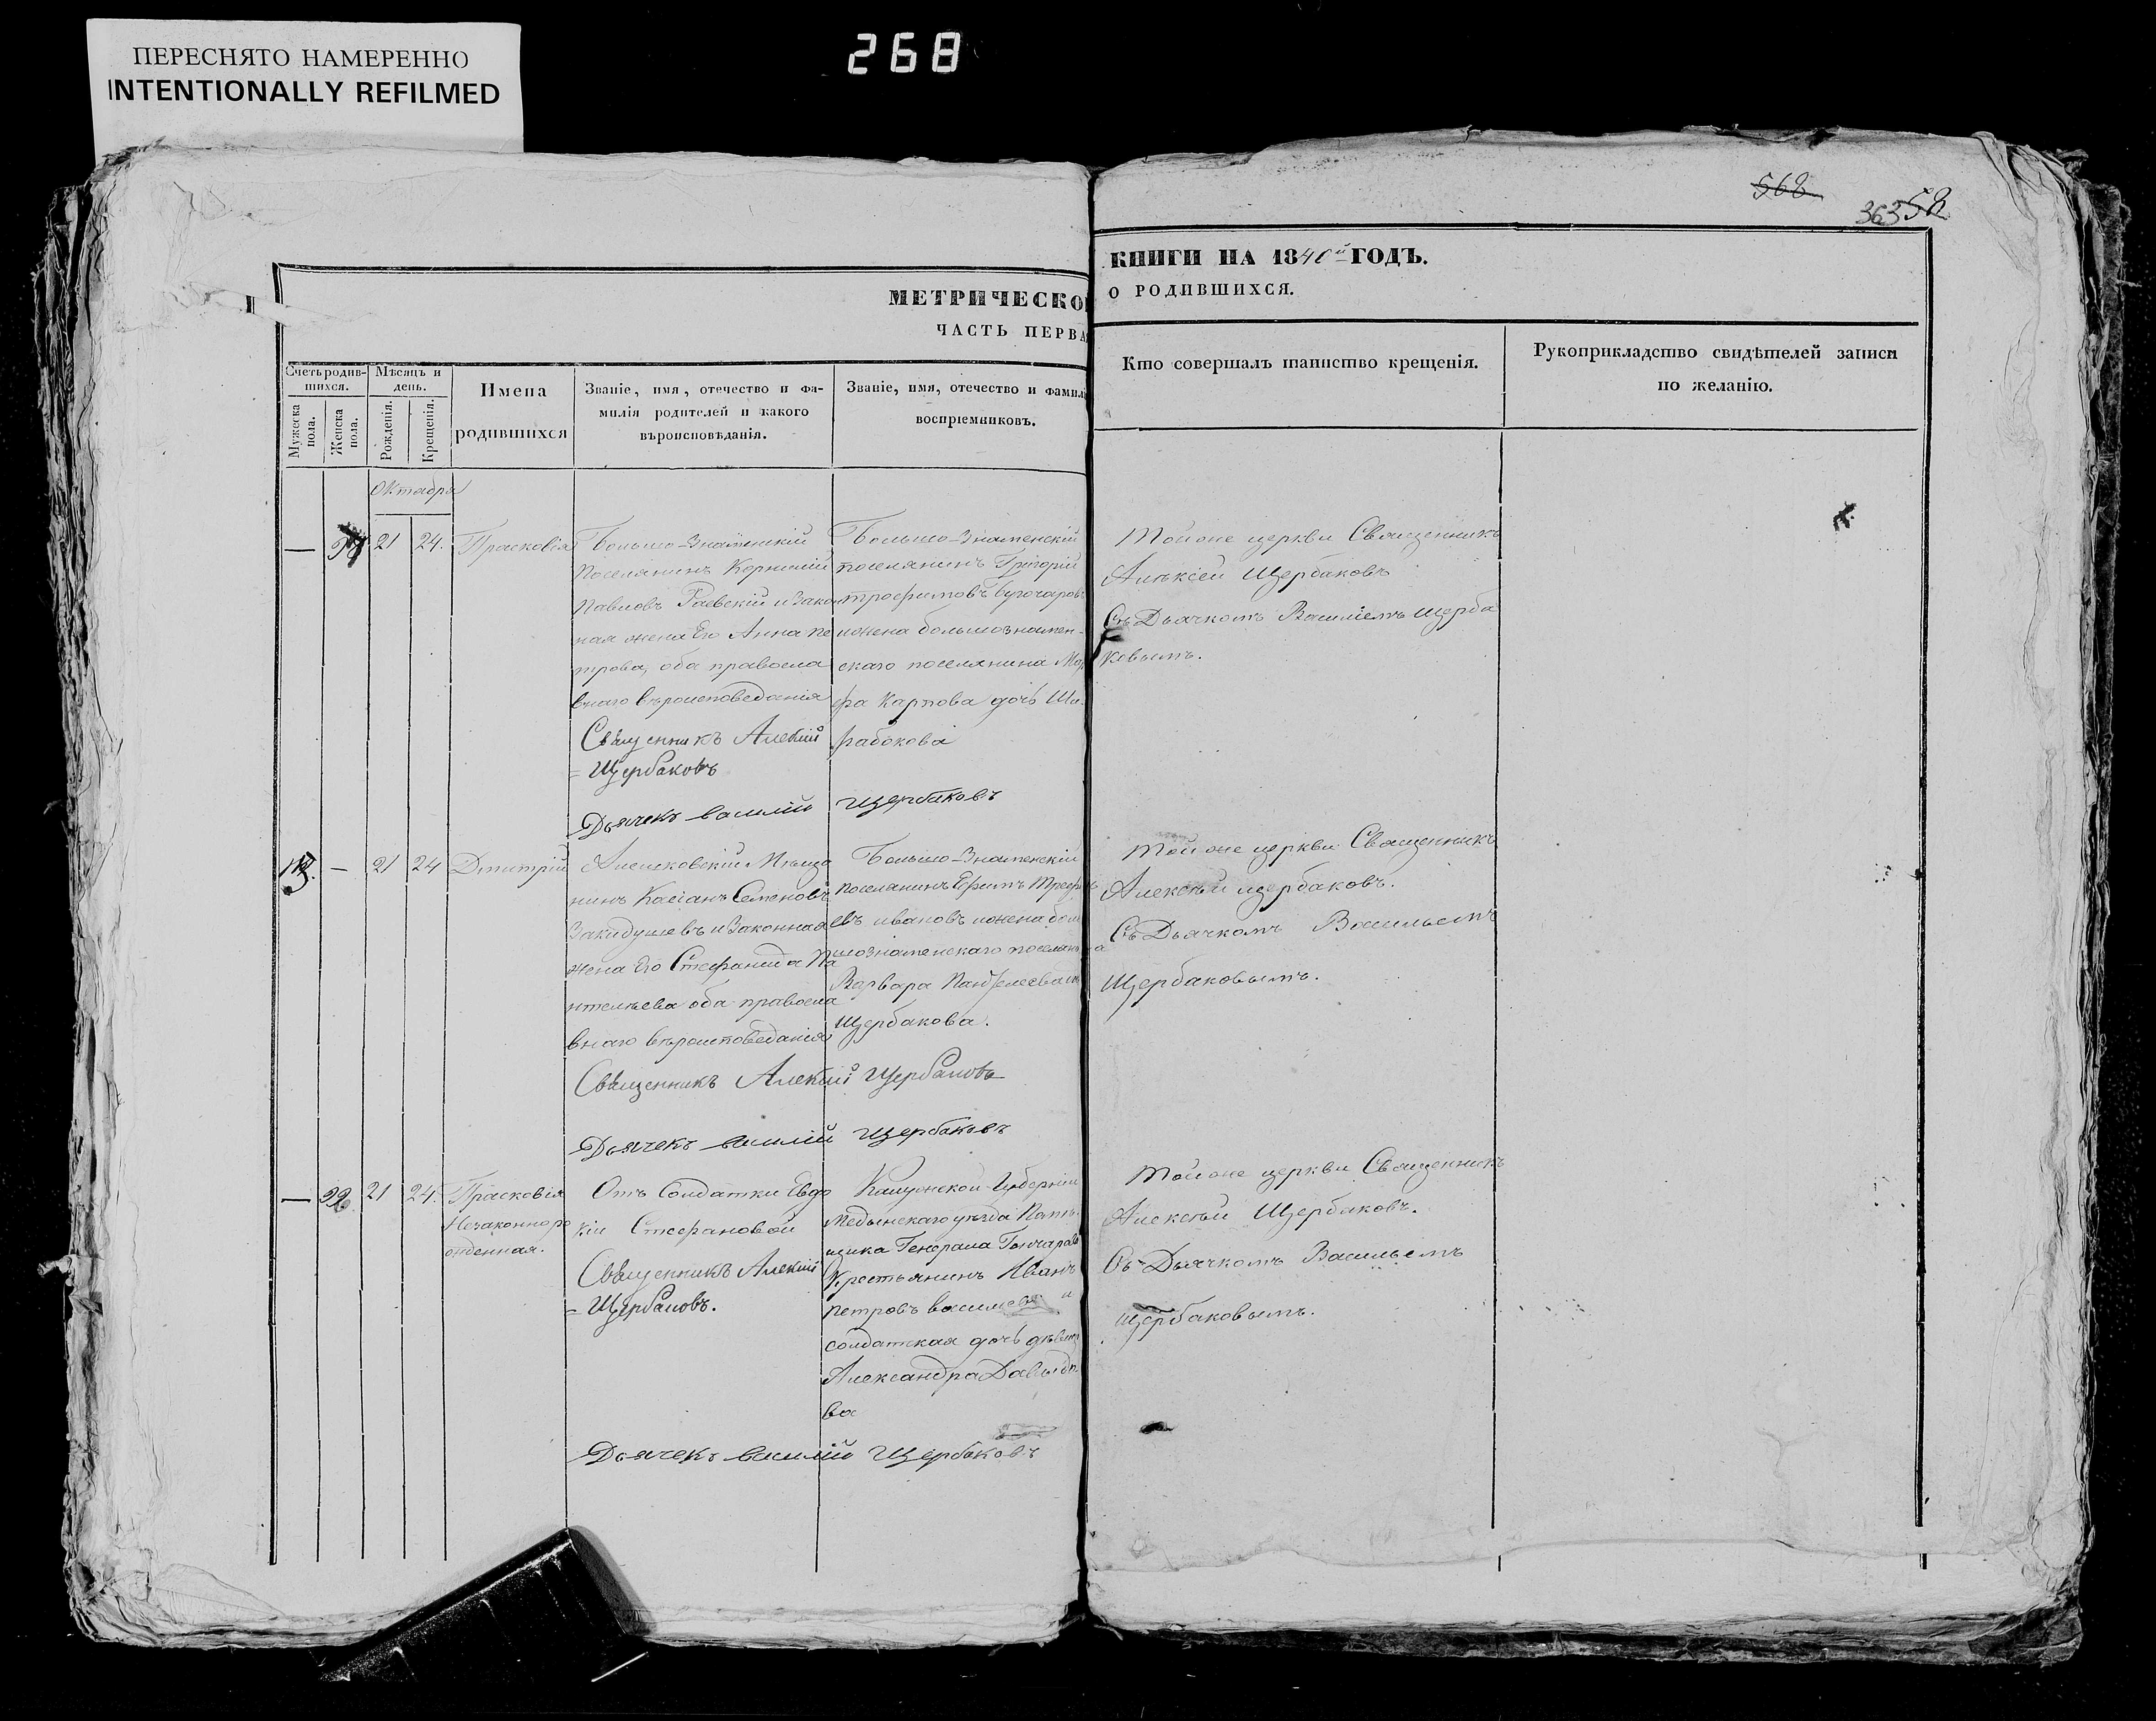 ПЕРЕСНЯТО НАМЕРЕННО
INTENTIONALLY REFILMED
268
568
363 58
МЕТРИЧЕСКО
ЧАСТЬ ПЕРВА
КНИГИ НА 1840й ГОДЪ.
О РОДИВШИХСЯ.
Счетъ родив-
шихся.
Мужеска
пола.
Женска
пола.
Мѣсяцъ и
день.
Рожденія.
Крещенія.
Имена
родившихся
Званіе, имя, отечество и фа-
милія родителей и какого
вѣроисповѣданія.
Званіе, имя, отечество и фамилі
воспріемниковъ.
Кто совершалъ таинство крещенія.
Рукоприкладство свидѣтелей записи
по желанію.
Октабря
— 21 24. Прасковія
Большо-Знаменскій
Поселянинъ Корнилій
Павловъ Раевскій и Закон
ная жена Его Анна Пе
трова, оба правосла
внаго вѣроисповеданія
Священникъ Алексій
= Щербаковъ
Дьячекъ василій Щербаковъ
Большо-Знаменскій
поселянинъ Григорій
трофимовъ
и жена большознамен-
скаго поселянина Мар
фа Карпова дочь
Тойже церкви Священникъ
Алексій Щербаковъ
Съ Дьячкомъ Василіемъ Щерба
ковымъ.
— 21 24 Дмитрій
Алешковскій Мѣща
нинъ Касіанъ Семеновъ
Закидушевъ и Законная
жена Его Стефанида Па
нтелѣева оба правосла
внаго вѣроисповеданія
Священникъ Алексій Щербаковъ
Дьячекъ василій Щербаковъ
Большо-Знаменскій
поселянинъ Ефимъ
ивановъ и жена боль
шознаменскаго поселянина
Варвара Пантелеева
Щербакова.
Тойже церкви Священникъ
Алексѣй щербаковъ.
Съ Дьячкомъ Васильемъ
Щербаковымъ.
— 21 24. Прасковія
Незаконноро
жденная.
Отъ Солдатки Евдо
кіи Стефановой
Священникъ Алексій
= Щербаковъ.
Калужской Губерніи
Медынскаго уѣзда Помѣ
щика Генерала Гончарова
Крестьянинъ Иванъ
петровъ и
солдатская дочь дѣвица
Александра Давыдо
ва
Дьячекъ василій Щербаковъ
Тойже церкви Священникъ
Алексѣй Щербаковъ.
Съ Дьячкомъ Васильемъ
щербаковымъ.